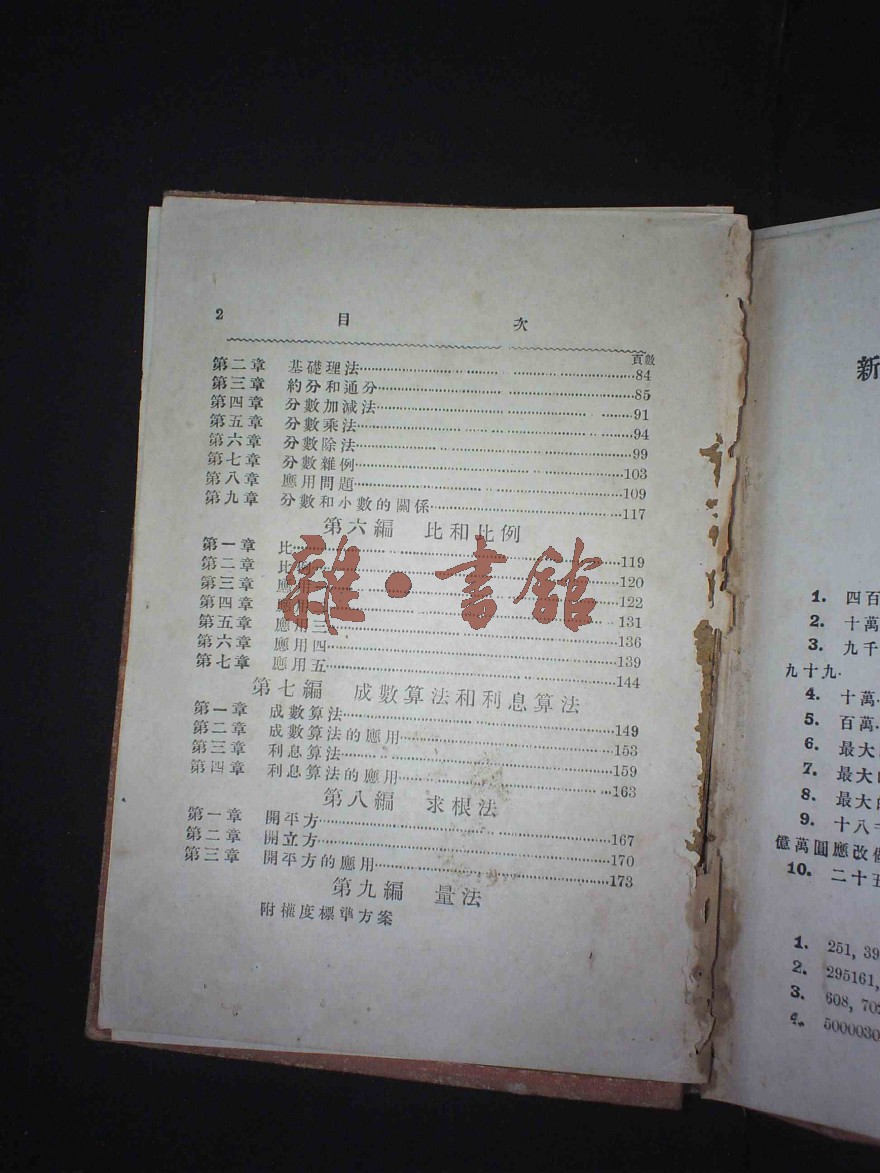 2 目 次
頁數
第二章 基礎理法 84
第三章 約分和通分 85
第四章 分數加減法 91
第五章 分數乘法 94
第六章 分數除法 99
第七章 分數雜例 103
第八章 應用問題 109
第九章 分數和小數的關係 117
第六編 比和比例
第一章 比 119
第二章 比例 120
第三章 應用一 122
第四章 應用二 131
第五章 應用三 136
第六章 應用四 139
第七章 應用五 144
第七編 成數算法和利息算法
第一章 成數算法 149
第二章 成數算法的應用 153
第三章 利息算法 159
第四章 利息算法的應用 163
第八編 求根法
第一章 開平方 167
第二章 開立方 170
第三章 開平方的應用 173
第九編 量法
附權度標準方案
雜·書館
新
1. 四百
2. 十萬
3. 九千
九十九
4. 十萬
5. 百萬
6. 最大
7. 最大的
8. 最大的
9. 十八
億萬圓應改
10. 二十五
1. 251, 39
2. 295161,
3. 608, 70
4. 5000030